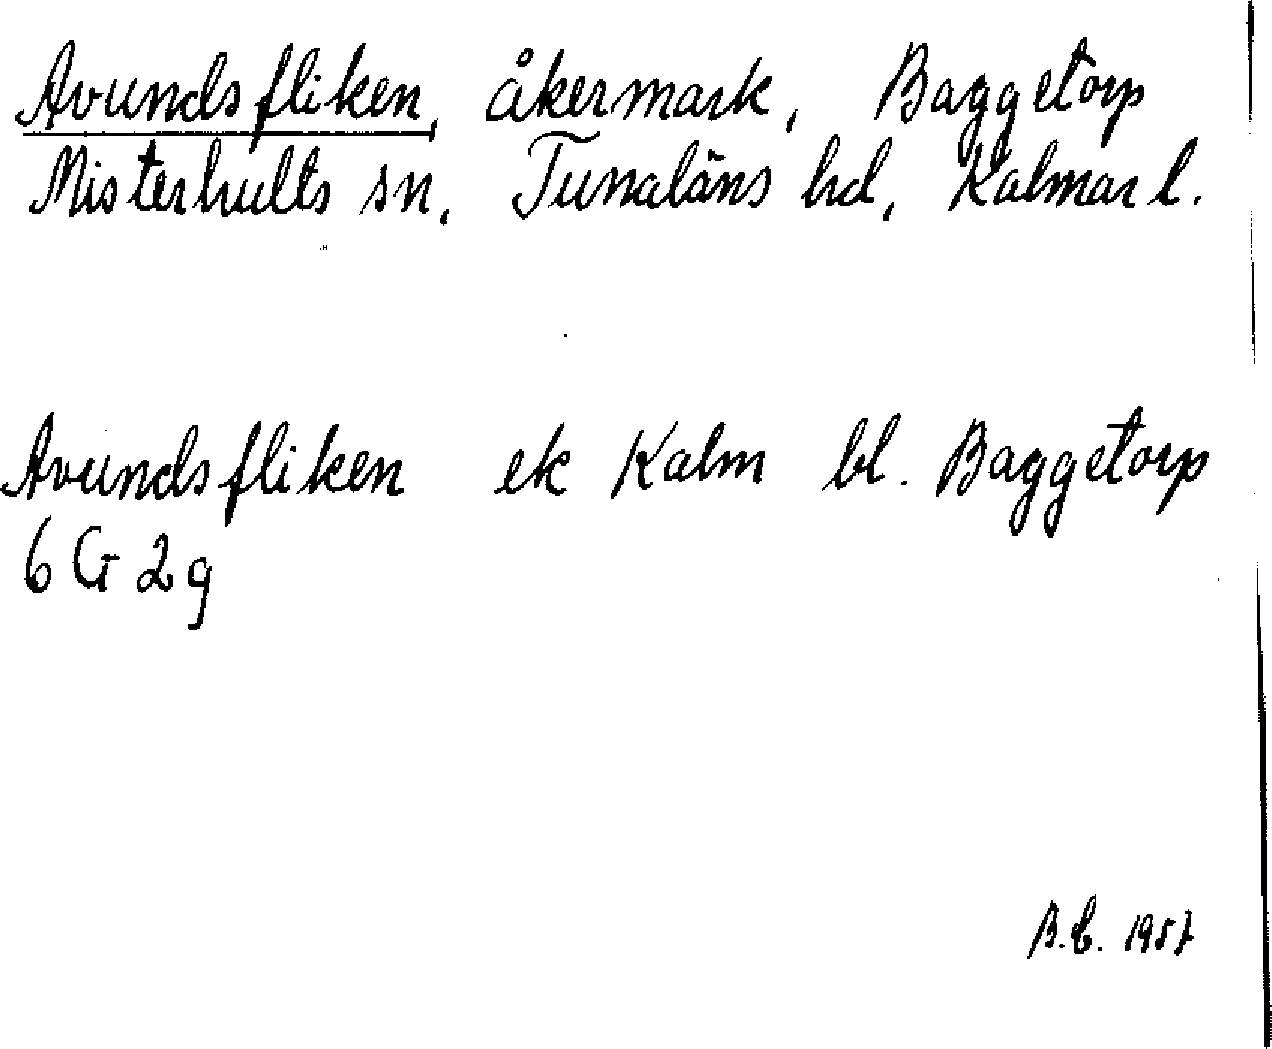 Avundsfliken, åkermark, Baggetorp
Misterhults sn, Tunaläns hd, Kalmar l.
Avundsfliken ek Kalm bl. Baggetorp
6 G 2 g
B.C. 1957